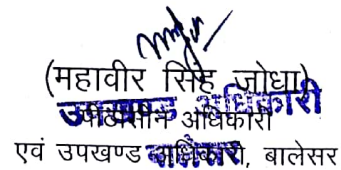 (महावीर सिंह जोधा)
उपखण्ड अधिकारी
पीठासीन अधिकारी
एवं उपखण्ड अधिकारी, बालेसर